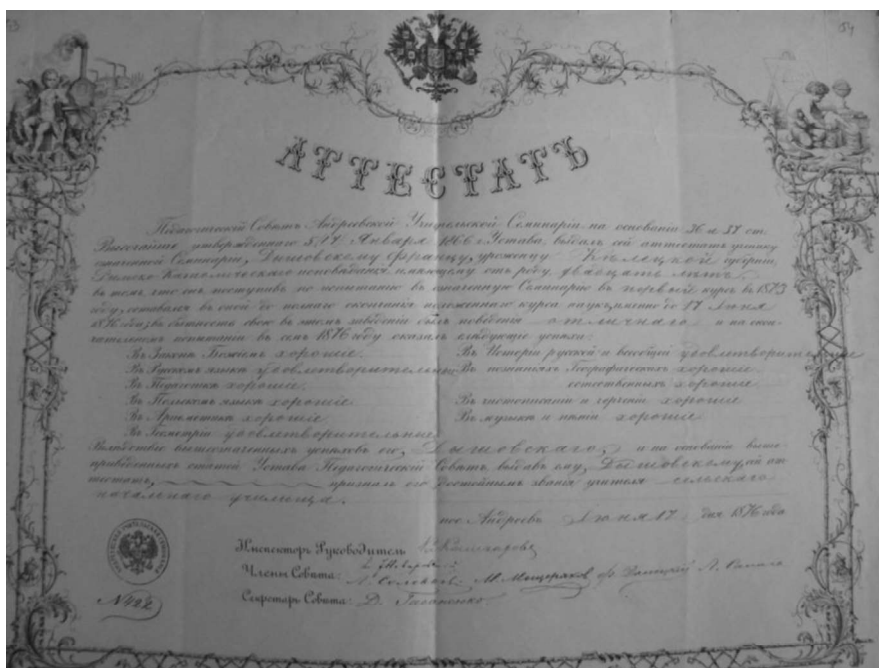 54
АТТЕСТАТЪ
Педагогическій Совѣтъ Андреевской Учительской Семинаріи на основаніи 36 и 37 ст.
Высочайше утвержденнаго 5/17 Января 1866 г. Устава, выдалъ сей аттестатъ ученику
означенной Семинаріи, Дышовскому Францу, уроженцу Кѣлецкой губерніи,
Римско-Католическаго исповѣданія, имѣющему отъ роду двадцать лѣтъ,
въ томъ что онъ, поступивъ по испытанію въ означенную Семинарію въ первый курсъ въ 1873
году, оставался въ оной до полнаго окончанія положеннаго курса наукъ, именно до 17 Іюня
1876 года; въ бытность свою въ этомъ заведеніи былъ поведенія отличнаго и на окон-
чательномъ испытаніи въ семъ 1876 году оказалъ слѣдующіе успѣхи:
Въ Законѣ Божіемъ хорошіе. Въ Исторіи русской и всеобщей удовлетворительные
Въ Русскомъ языкѣ удовлетворительные Въ познаніяхъ Географическихъ хорошіе
Въ Педагогикѣ хорошіе. естественныхъ хорошіе
Въ Польскомъ языкѣ хорошіе Въ чистописаніи и черченіи хорошіе
Въ Ариѳметикѣ хорошіе Въ музыкѣ и пѣніи хорошіе
Въ Геометріи удовлетворительные
Вслѣдствіе вышеозначенныхъ успѣховъ его, Дышовскаго, и на основаніи выше-
приведенныхъ статей Устава Педагогическій Совѣтъ, выдавъ ему, Дышовскому, сей ат-
тестатъ, призналъ его достойнымъ званія учителя сельскаго
начальнаго училища.
пос. Андреевъ Іюня 17 дня 1876 года
Инспекторъ Руководитель
Члены Совѣта: Л. Соловьевъ М. Мещеряковъ
Секретарь Совѣта: Д.
№ 492